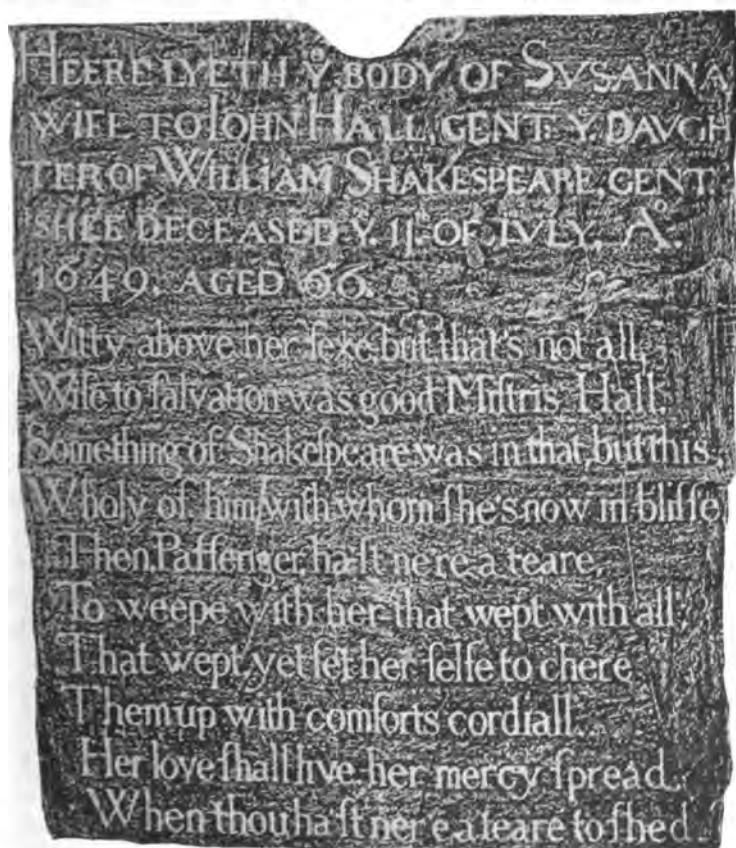 HEERE LYETH Yᴱ. BODY OF SVSANNA
WIFE TO IOHN HALL, GENT: Yᴱ. DAVGH
TER OF WILLIAM SHAKESPEARE, GENT:
SHEE DECEASED Yᴱ. IJᵗʰ OF IVLY, Aº.
1649, AGED 66.
Witty above her ſexe, but that's not all,
Wiſe to ſalvation was good Miſtris Hall,
Something of Shakeſpeare was in that, but this
Wholy of him with whom ſhe's now in bliſſe.
Then, Paſſenger, ha'ſt ne're a teare,
To weepe with her that wept with all;
That wept, yet ſet her ſelfe to chere
Them up with comforts cordiall.
Her love ſhall live, her mercy ſpread,
When thou ha'ſt ner'e a teare to ſhed.